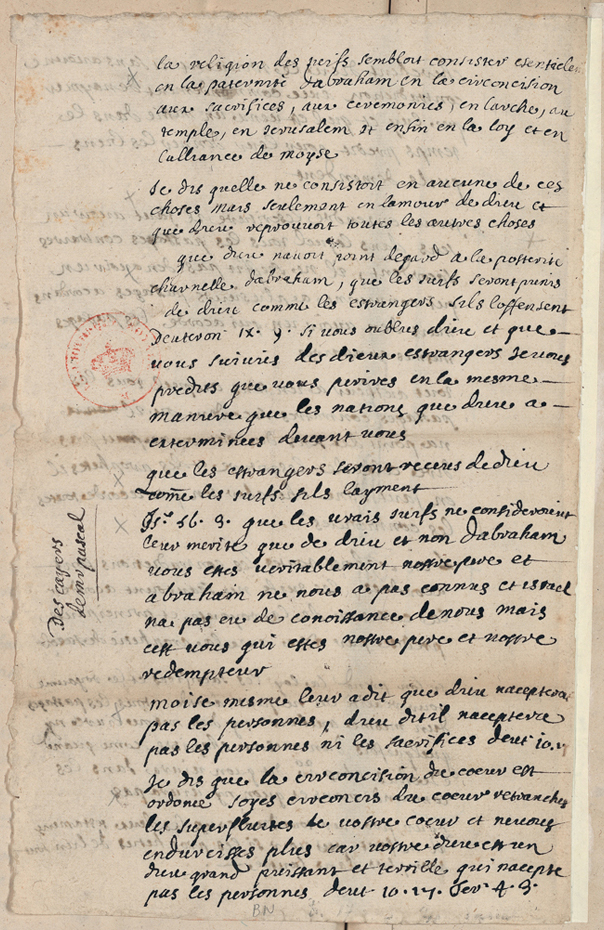 la religion des juifs sembloit consister esentielem
en la paternité dabraham en la circoncision
aux sacrifices, aux ceremonies, en larche, au
temple, en Jerusalem et enfin en la loy et en
lalliance de moyse
Je dis quelle ne consistoit en aucune de ces
choses mais seulement en lamour de dieu et
que dieu reprouvoit toutes les autres choses
que dieu navoit point degard a la posterité
charnelle dabraham, que les juifs seront punis
de dieu comme les estrangers sils loffensent
Deuteron. IX. 9. si vous oublies dieu et que
vous suivies des dieux estrangers Je vous
predits que vous perires en la mesme
maniere que les nations que dieu a
exterminées devant vous
que les estrangers seront receus de dieu
comē les juifs sils layment
Jsᵉ. 56. 3. que les vrais juifs ne consideroient
leur merite que de dieu et non dabraham
vous estes veritablement nostre pere et
abraham ne nous a pas connus et israel
na pas eu de conoissance de nous mais
cest vous qui estes nostre pere et nostre
redempteur
moise mesme leur a dit que dieu naceptera
pas les personnes, dieu dit il naceptera
pas les personnes ni les sacrifices deut 10.
Je dis que la circoncision du coeur est
ordonée soyes circoncis du coeur retranches
les superfluites de vostre coeur et ne vous
endurcisses plus car vostre dieu est un
dieu grand puissant et terrible qui nacepte
pas les personnes deut. 10. 17. Jer. 4. 3.
Des cayers
de mr pascal
BN